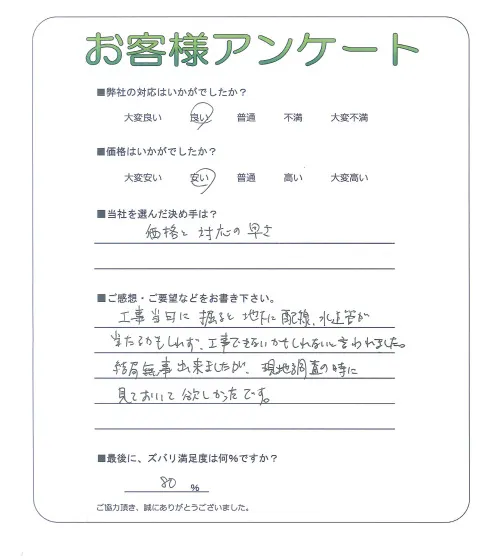 お客様アンケート
■弊社の対応はいかがでしたか？
大変良い 良い 普通 不満 大変不満
■価格はいかがでしたか？
大変安い 安い 普通 高い 大変高い
■当社を選んだ決め手は？
価格と対応の早さ
■ご感想・ご要望などをお書き下さい。
工事当日に掘ると地下に配線、水道管が
当たるかもしれず、工事できないかもしれないと言われました。
結局無事出来ましたが、現地調査の時に
見ておいて欲しかったです。
■最後に、ズバリ満足度は何％ですか？
80 ％
ご協力頂き、誠にありがとうございました。